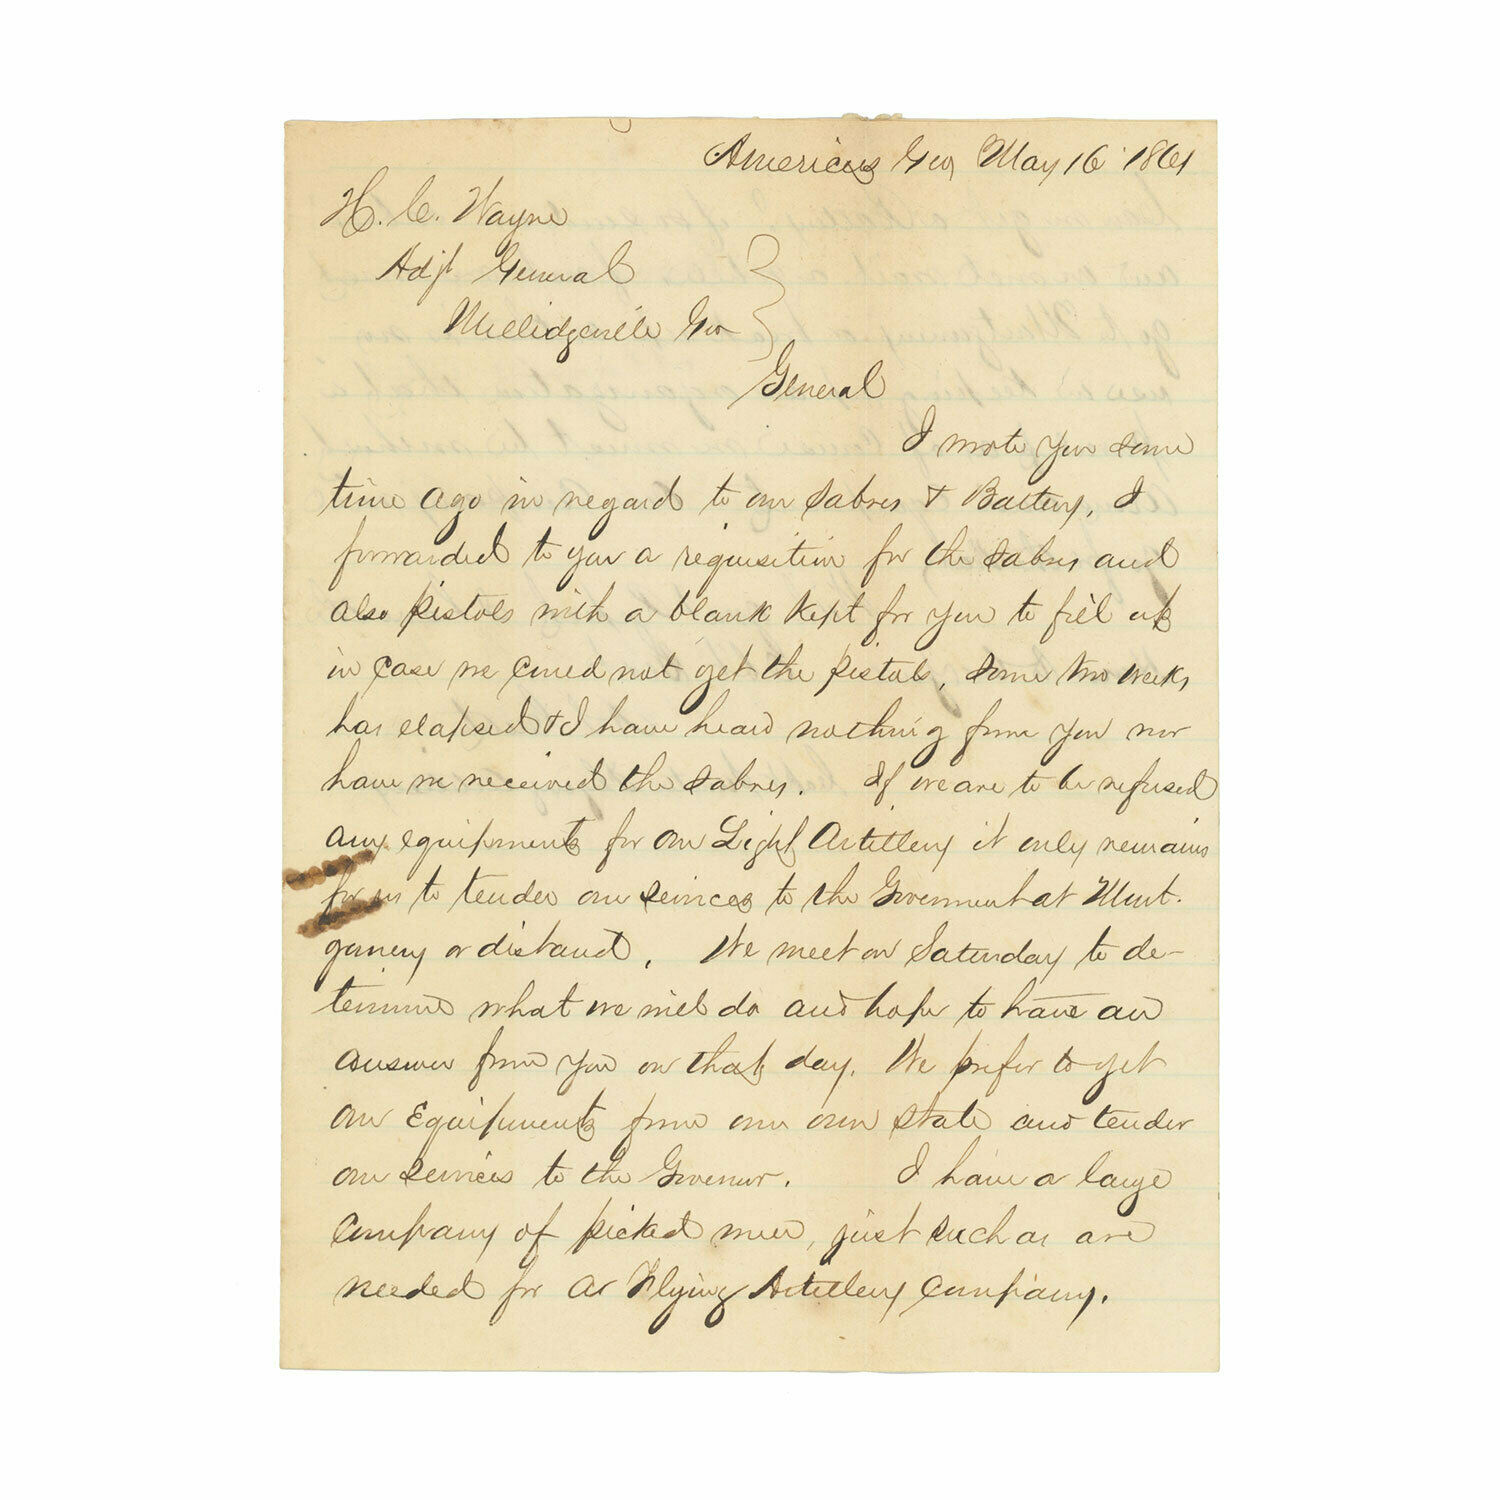 Americus Geo, May 16 1861
H. C. Wayne
Adjt General
Milledgeville Geo
General
I wrote you some
time ago in regard to our Sabres & Battery. I
forwarded to you a requisition for the Sabres and
also pistols with a blank kept for you to fill up
in case we could not get the pistols, Some two weeks
has elapsed & I have heard nothing from you nor
have we received the Sabres. If we are to be refused
any equipments for our Light Artillery it only remains
for us to tender our Services to the Goverment at Mont-
gomery or disband. We meet on Saturday to de-
termine what we will do and hope to have an
answer from you on that day. We prefer to get
our Equipments from our own State and tender
our Services to the Govenor. I have a large
Company of picked men, just such as are
needed for a Flying Artillery Company.